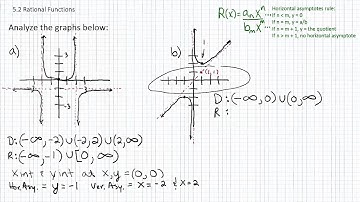 5.2 Rational Functions
Analyze the graphs below:
R(x) = aₙxⁿ / bₘxᵐ
Horizontal asymptotes rule:
***if n < m, y = 0
if n = m, y = a/b
***if n = m + 1, y = the quotient
if n > m + 1, no horizontal asymptote
a)
b)
D: (-∞, -2) ∪ (-2, 2) ∪ (2, ∞)
R: (-∞, -1) ∪ [0, ∞)
x int & y int at x, y = (0, 0)
Hor. Asy. = y = -1 Ver. Asy. = x = -2 & x = 2
D: (-∞, 0) ∪ (0, ∞)
R: